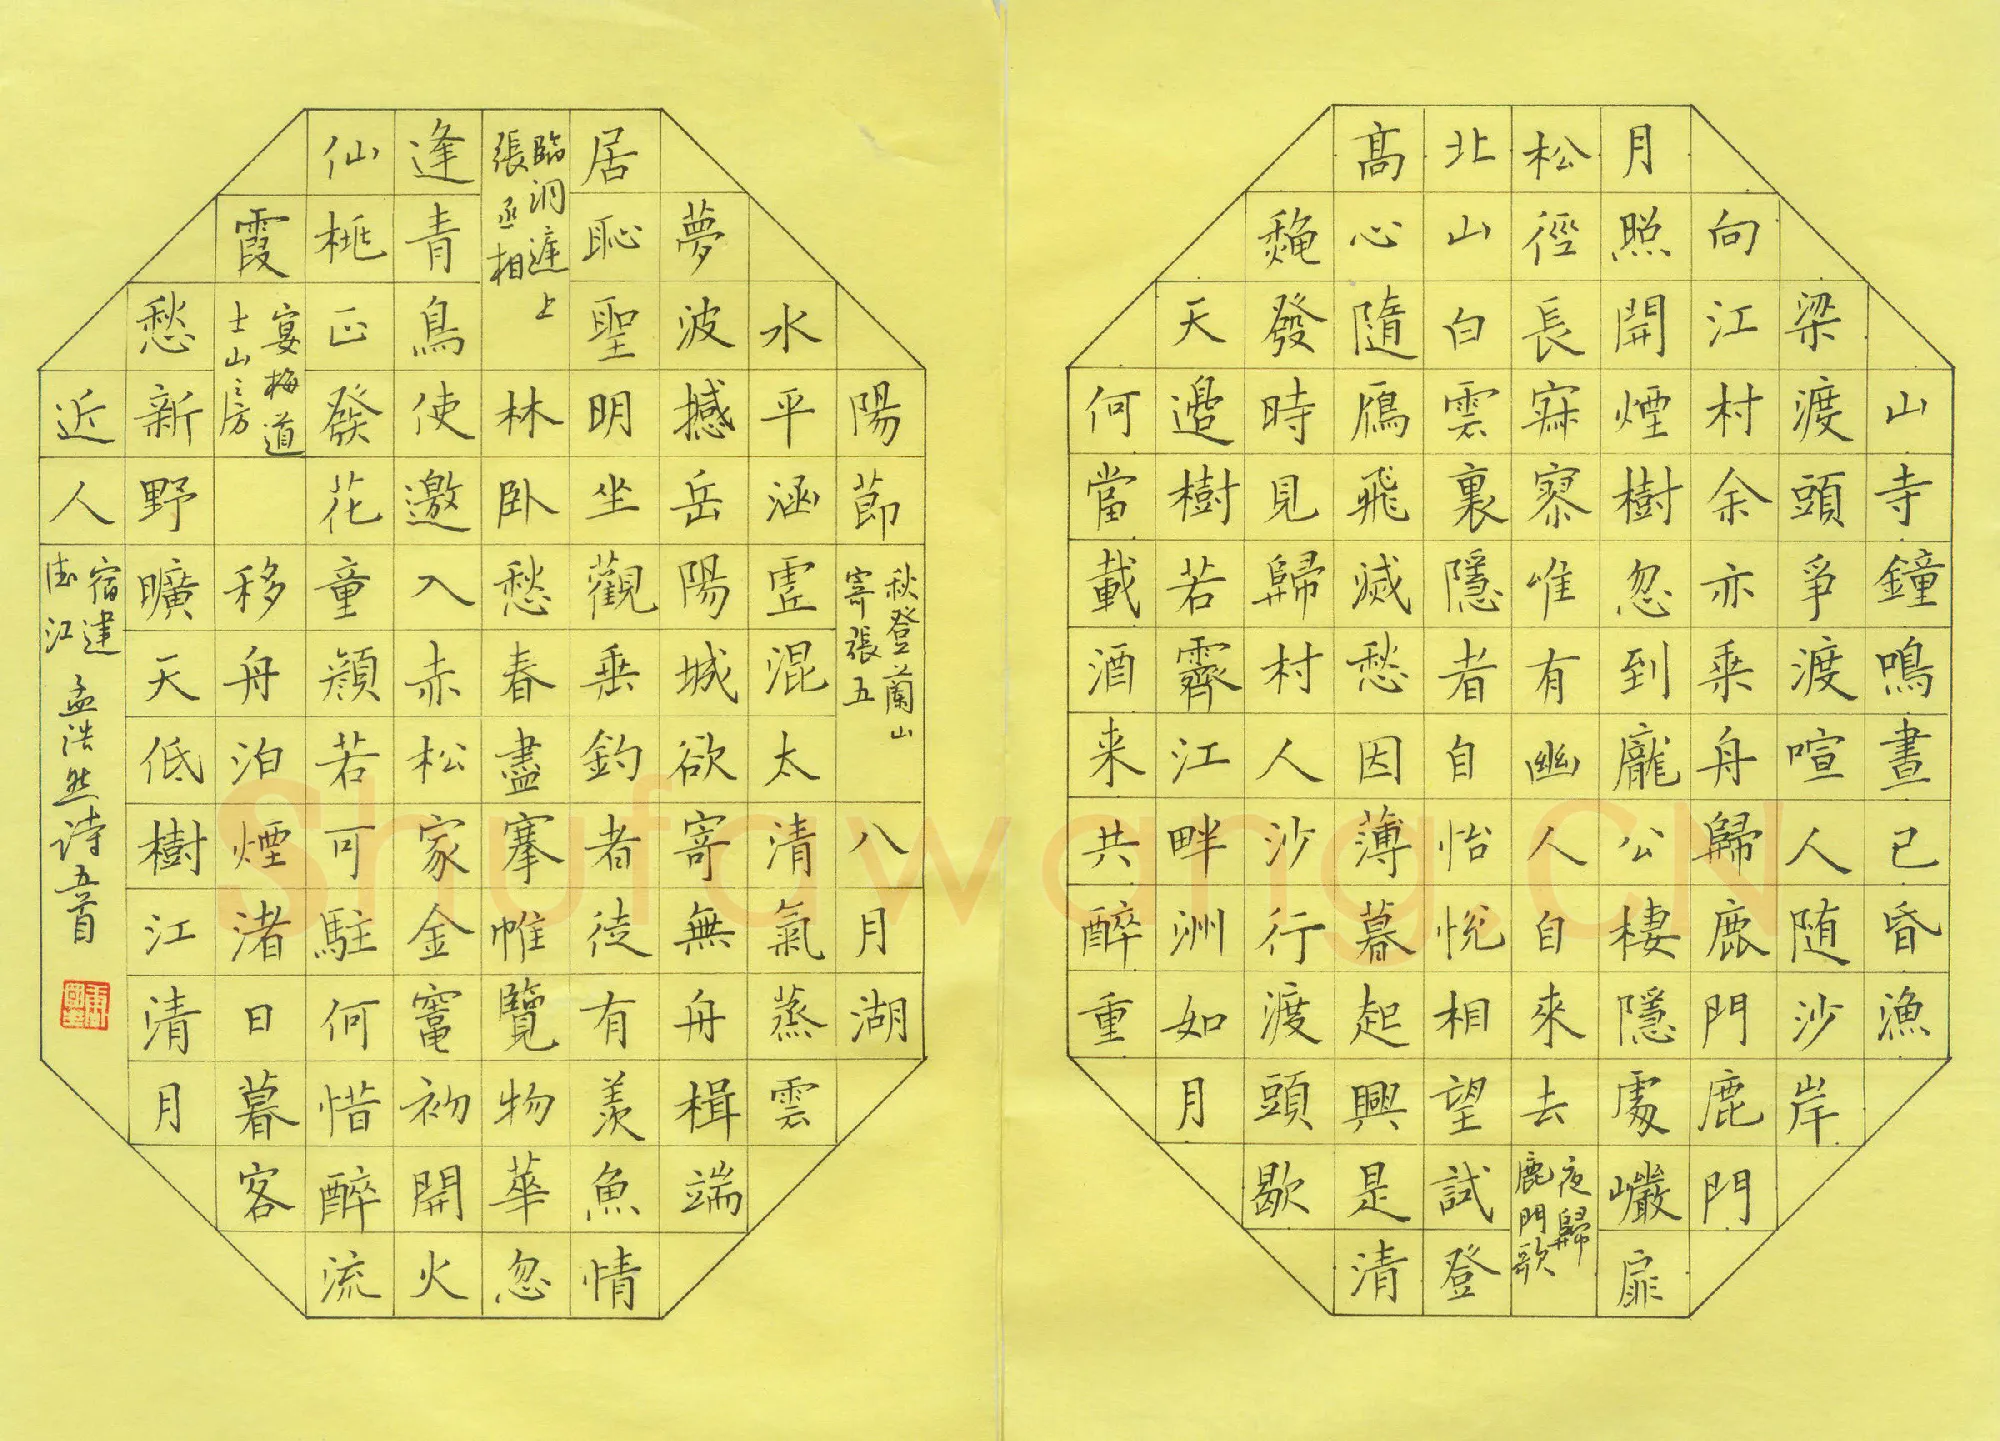 山寺鐘鳴晝已昏漁
梁渡頭爭渡喧人随沙岸
向江村余亦乗舟歸鹿門鹿門
月照開煙樹忽到龐公棲隱處巖扉
松徑長寂寥唯有幽人自來去
夜歸
鹿門歌
北山白雲裏隱者自怡悅相望試登
髙心隨鴈飛滅愁因薄暮起興是清
穐發時見歸村人沙行渡頭歇
天邊樹若薺江畔洲如月
何當載酒来共醉重
陽節
秋登蘭山
寄張五
八月湖
水平涵虛混太清氣蒸雲
夢波撼岳陽城欲寄無舟楫端
居恥聖明坐觀垂釣者徒有羨魚情
臨洞庭上
張丞相
林卧愁春盡搴帷覽物華忽
逢青鳥使邀入赤松家金竈初開火
仙桃正發花童顏若可駐何惜醉流
霞
宴梅道
士山之房
移舟泊煙渚日暮客
愁新野曠天低樹江清月
近人
宿建
德江
孟浩然诗五首
Shufawang.CN